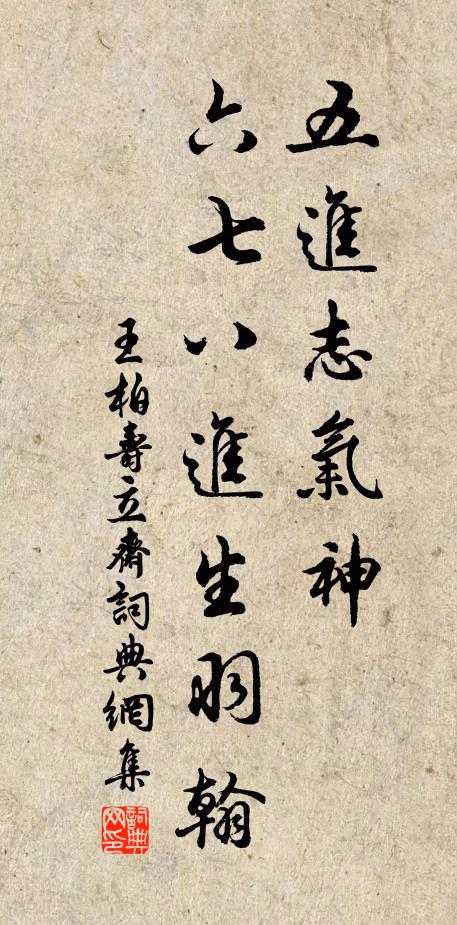 五進志氣神
六七八進生羽翰
王柏壽立齋詞典網集
詞典網印